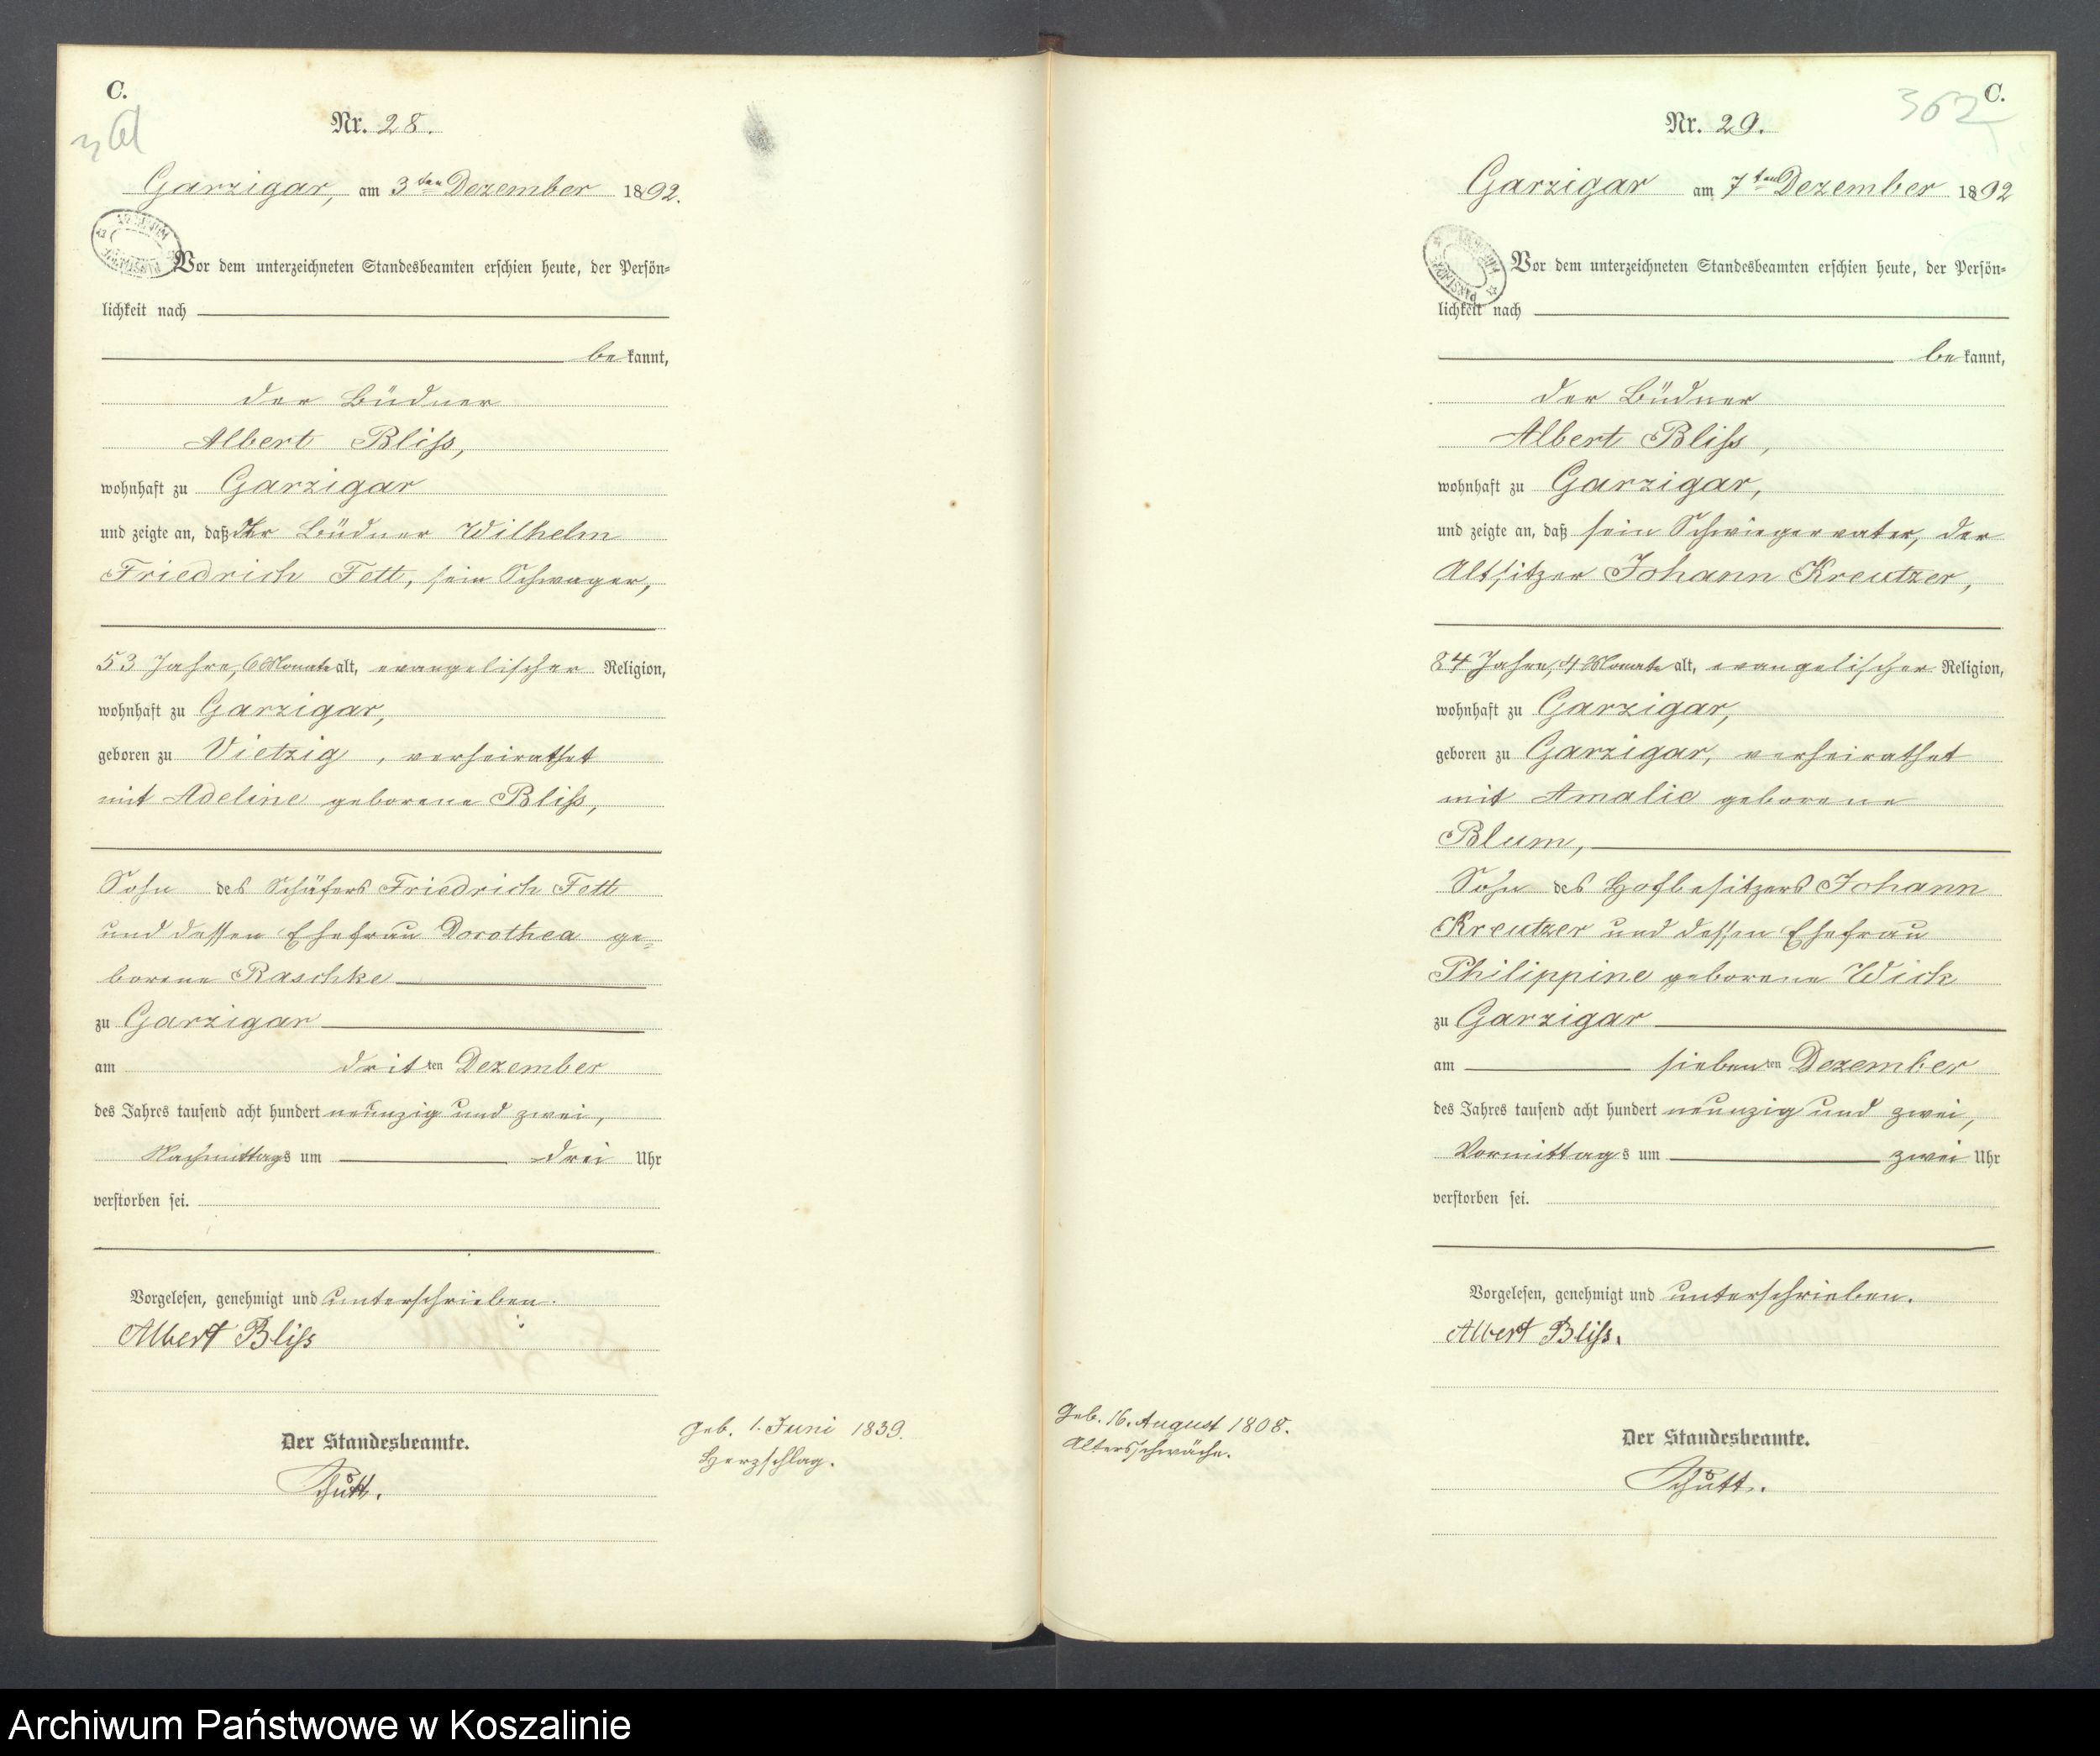 C.
361
Nr. 28.
Garzigar, am 3ten Dezember 1892.
Vor dem unterzeichneten Standesbeamten erschien heute, der Persön=
lichkeit nach
be kannt,
der Büdner
Albert Bliß,
wohnhaft zu Garzigar
und zeigte an, daß der Büdner Wilhelm
Friedrich Fett, sein Schwager,
53 Jahre, 6 Monate alt, evangelischer Religion,
wohnhaft zu Garzigar,
geboren zu Vietzig, verheirathet
mit Adeline geborene Bliß,
Sohn des Schäfers Friedrich Fett
und dessen Ehefrau Dorothea ge=
borene Raschke
zu Garzigar
am dritten Dezember
des Jahres tausend acht hundert neunzig und zwei,
Nachmittags um drei Uhr
verstorben sei.
Vorgelesen, genehmigt und unterschrieben.
Albert Bliss
Der Standesbeamte.
Schütt.
geb. 1. Juni 1839.
Herzschlag.
362
C.
Nr. 29.
Garzigar am 7ten Dezember 1892
Vor dem unterzeichneten Standesbeamten erschien heute, der Persön=
lichkeit nach
be kannt,
der Büdner
Albert Bliß,
wohnhaft zu Garzigar,
und zeigte an, daß sein Schwiegervater, der
Altsitzer Johann Kreutzer,
84 Jahre, 4 Monate alt, evangelischer Religion,
wohnhaft zu Garzigar,
geboren zu Garzigar, verheirathet
mit Amalie geborene
Blum,
Sohn des Hofbesitzers Johann
Kreutzer und dessen Ehefrau
Philippine geborene Wick
zu Garzigar
am siebenten Dezember
des Jahres tausend acht hundert neunzig und zwei,
Vormittags um zwei Uhr
verstorben sei.
Vorgelesen, genehmigt und unterschrieben.
Albert Bliss.
Der Standesbeamte.
Schütt.
Geb. 16. August 1808.
Altersschwäche.
Archiwum Państwowe w Koszalinie